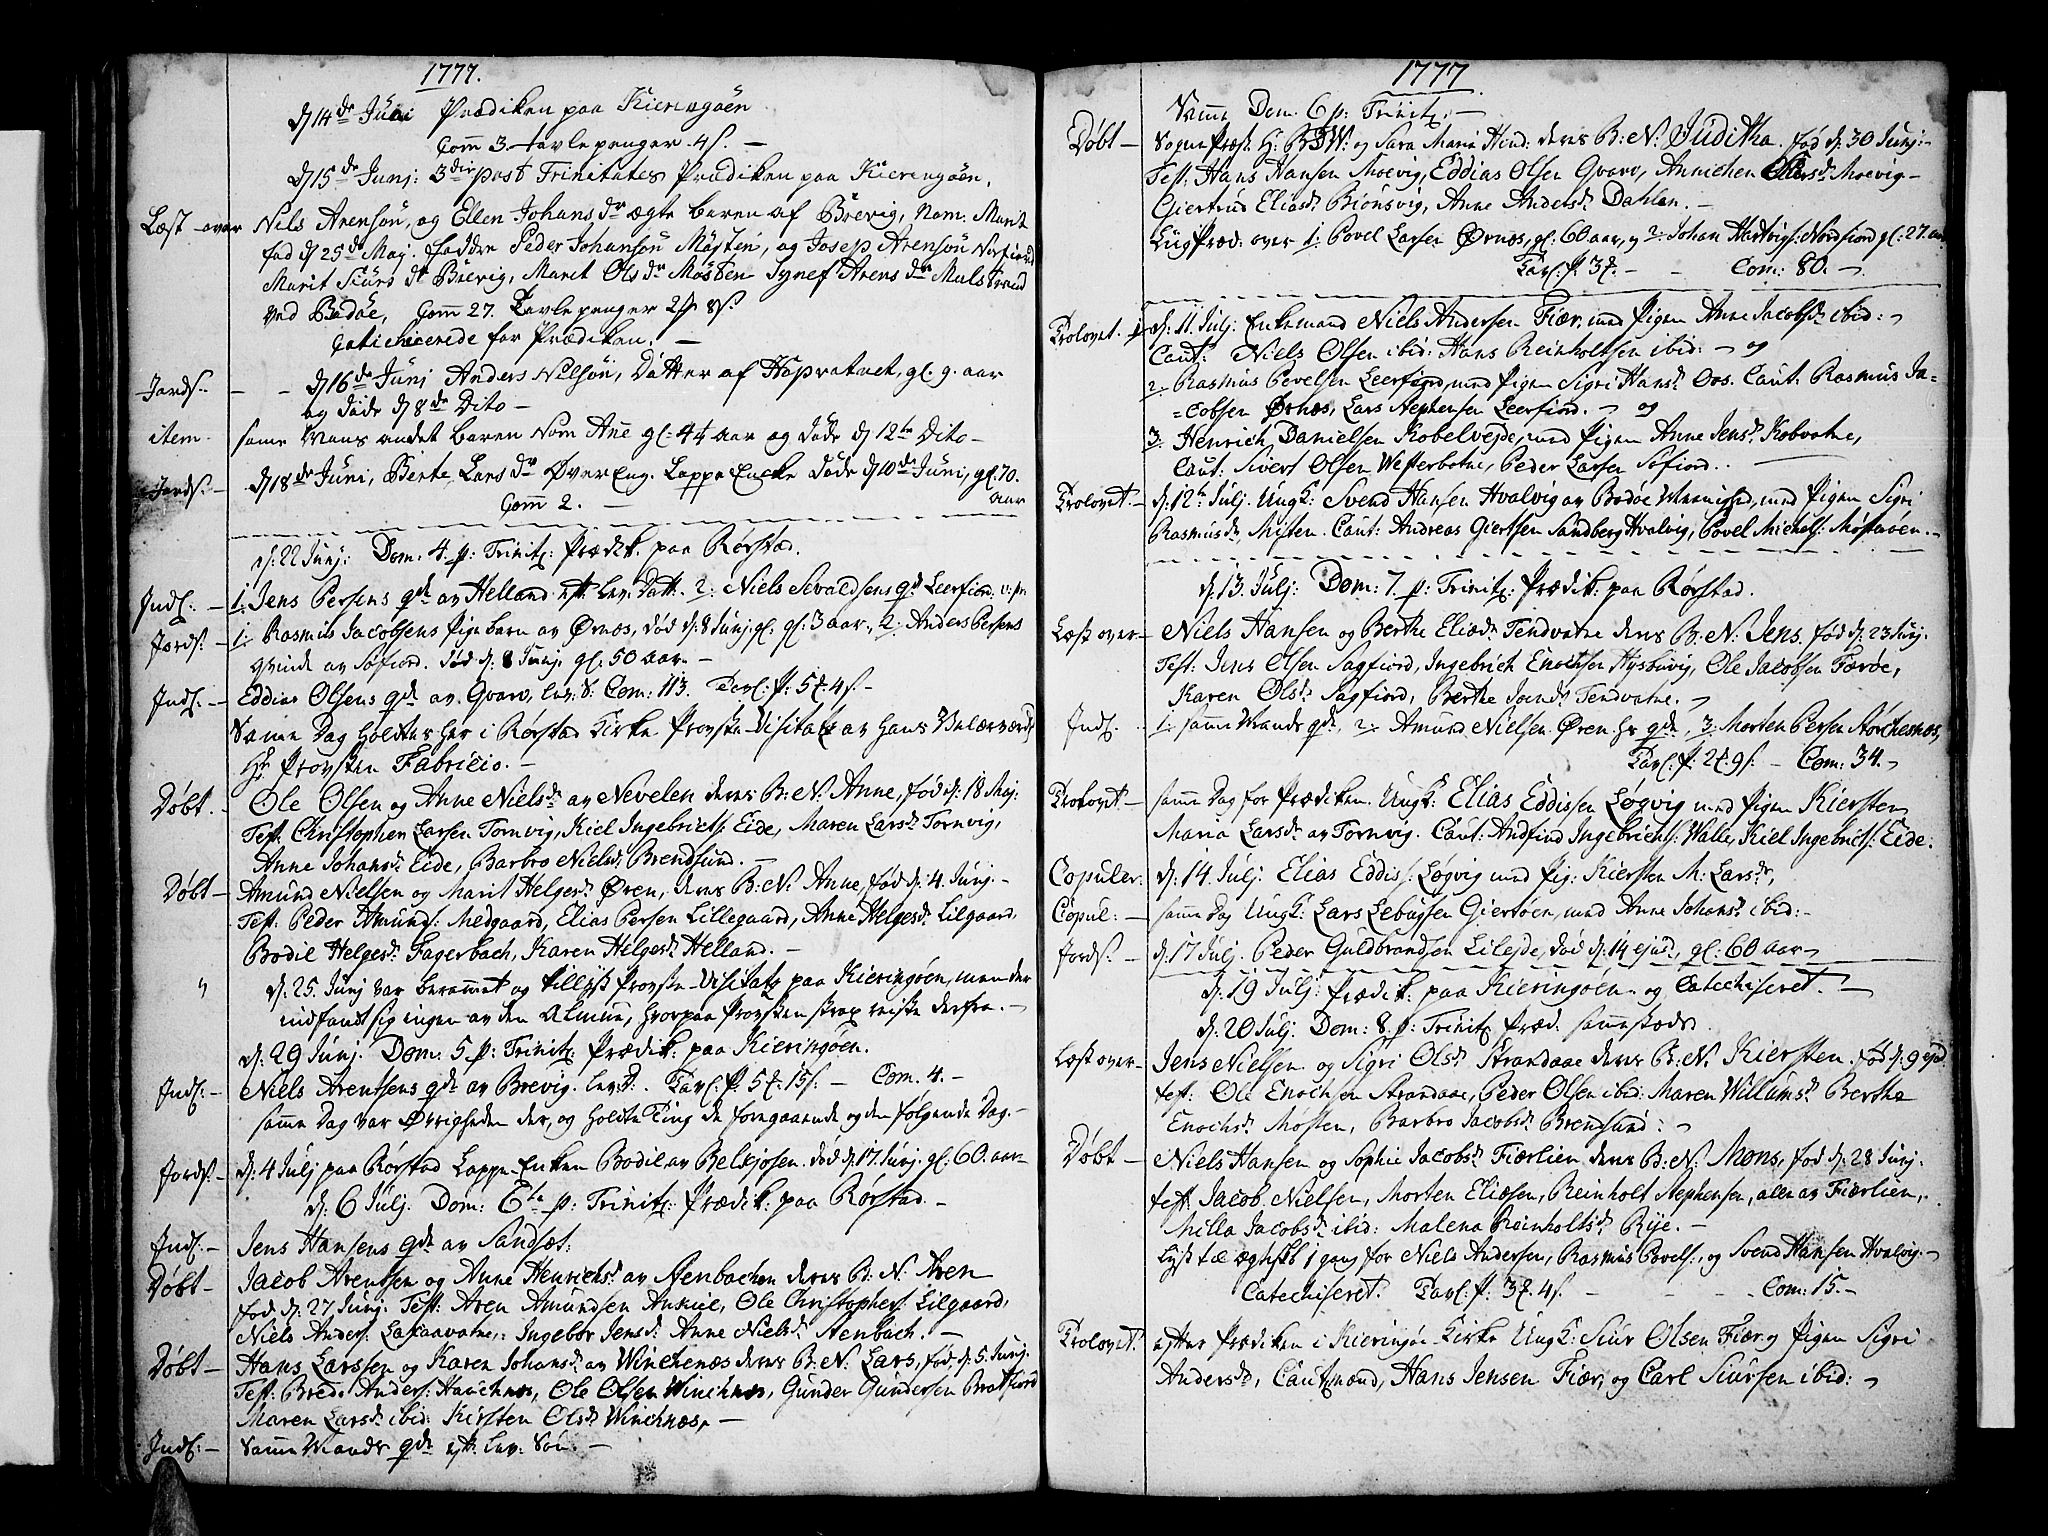 1777.
d 14de Juni Prædiken paa Kieringøen
Com 3. tavlepenger 4 s. —
d 15de Junj: 3die post Trinitates Prædiken paa Kieringøen.
Læst over Nils Arensøn, og Ellen Johansdr ægte baren af Brevig, Nom. Marit
fød d 25de Maj. faddre Peder Johansøn Møsten, og Josep Arensøn Norfiord
Marit Siursdr Brevig, Marit Olsdr Møsten Synef Arensdr Mulstrand
ved Bodøe, Com 27. Tavlepenger 8 s.
Catichicerede for Prædiken. —
Jords. — — d 16de Junj Anders Nilsøn, Datter af Hopvatnet, gl. 9. aar
og døde d 8de Dito —
item. same Mans andet baren Nom Ane gl: 4 aar og døde d 12te Dito —
Jords. — d 18de Juni, Berte Larsdr Øvereng. Lappe Encke døde d 10de Juni, gl. 70.
aar
Com 2. —
d: 22 Junj: Dom: 4. p: Trinit: Prædik. paa Rørstad.
Indl. — 1. Jens Persens qde av Helland eft. lev. Datt. 2: Niels Sivaldsens qde Leerfiord.
Jords. — 1. Rasmus Jacobsens Pigebarn av Ørnes, død d: 8 Junj. gl. 3 aar, 2: Anders Persens
qvinde av Søfiord. død d: 8 Junj. gl: 50 aar. —
Indl. — Eddias Olsens qde av Qvarv, lev: S: Com: 113. Tavl: p: 5 . 4 s. —
Same Dag holdtes her i Rørstad Kirke Provste-Visitatz av hans Velærværd:
Hr Provsten Fabricio. —
Døbt. — Ole Olsen og Anne Nielsdr av Nevelen deres B: N: Anne, fød d: 18 Maj:
Test: Christopher Larsen Tornvig, Kiel Ingebricts: Eide, Maren Larsdr Tornvig,
Anne Johansdr Eide, Barbro Nielsdr Brendsund. —
Døbt — Amund Nielsen og Marit Helgesdr Øren, deres B: N: Anne, fød d: 4 Junj. —
Test: Peder Amunds: Medgaard, Elias Persen Lillegaard, Anne Helgesdr Lilgaard,
Bodil Helgesdr Fagerbach, Karen Helgesdr Helland. —
d: 25. Junj var berammet og tillyst Provste-Visitatz paa Kieringøen, men der
indfandt sig ingen av den Almue, hvorpaa Provsten strax reiste derfra. —
d: 29 Junj. Dom: 5 p: Trinit: Prædik: paa Kieringøen.
Indl. — Niels Arentsens qde av Brevig. lev: D: Tavl: p. 5 . 15 s. — Com. 4. —
same Dag var Øvrigheden der, og holdte Ting de foregaaende og den følgende Dag. —
Jords. — d: 4 Julj paa Rørstad Lappe-Enken Bodil av Belkjosen. død d: 17 Junj. gl: 60. aar —
d: 6 Julj. Dom: 6te p: Trinit: Prædik: paa Rørstad. —
Indl. — Jens Hansens qde av Sandset:
Døbt — Jacob Arentsen og Anne Henrichsdr av Stenbachen deres B: N: Aren
fød d: 27 Junj. Test: Aren Amundsen Ankiil, Ole Christophers: Lilgaard,
Niels Anders: Laxaavatne, Ingebor Jensdr Anne Nielsdr Stenbach. —
Døbt — Hans Larssen og Karen Johansdr av Winchenæs deres B: N: Lars, fød d: 5 Junj.
Test: Brede Anders: Hauchnes, Ole Olsen Winchnes, Gunder Gundersen Brotfiord
Maren Larsdr ibid: Kirsten Olsdr Winchnæs, —
Indl. — Same Mands qde eft. lev: Søn. —
1777
Same Dom. 6 p: Trinit. —
Døbt — Sogne Præst H: B W: og Sara Maria Hind: deres B: N: Juditha. fød d: 30 Junj:
Test: Hans Hansen Moevig, Eddias Olsen Qvarv, Annichen Moevig —
Giertrud Eliasdr Biønsvig, Anne Andersdr Dahlen. —
Liig Præd: over 1: Povel Larsen Ørnæs, gl: 60 aar, og 2: Johan Hartvigs: Nordfiord gl: 27. aar
Tavl: p. 3 . — — Com: 80. —
Trolovet. d: 11. Julj: Enkemand Niels Andersen Fiær, med Pigen Anne Jacobsdr ibid: —
Caut: Niels Olsen ibid: Hans Reinholtsen ibid: — og
2. Rasmus Pevelsen Leerfiord, med Pigen Sigri Hansdr Oos. Caut: Rasmus Ja=
=cobsen Ørnæs, Lars Stephensen Leerfiord. — og
3. Henrich Danielsen Kobelvejde, med Pigen Anne Jensdr Kobvatne,
Caut: Sivert Olsen Westerbotne, Peder Larsen Søfiord. —
Trolovet. — d: 12te Julj. Ungk: Svend Hansen Hvalvig av Bodøe Menighed, med Pigen Sigri
Rasmusdr, Misten. Caut: Andreas Giertsen Sandberg Hvalvig, Povel Michels: Møstøen. —
d: 13. Julj: Dom: 7 p: Trinit: Prædik: paa Rørstad.
Læst over — Niels Hansen og Berthe Eliædr Tendvatne deres B: N: Jens, fød d: 23 Junj.
Test: Jens Olsen Sagfiord, Ingebrich Enochsen Hysbuvig, Ole Jacobsen Færøe,
Karen Olsdr Sagfiord, Berthe Joendr Tendvatne. —
Indl. 1. same Mands qde, 2. Amund Nielsen Øren hs qde, 3. Morten Persen Storchesnæs,
Tavl: p. 2 . 9 s. — Com: 34. —
Trolovet — same Dag for Prædiken. Ungk: Elias Eddissen Løgvig med Pigen Kiersten
Maria Larsdr av Tornvig. Caut: Andfind Ingebriens: Walle, Kiel Ingebricts: Eide.
Copuler: d: 14. Julj. Elias Eddiss: Løgvig med Pig: Kiersten M: Larsdr,
Copul: — same Dag Ungk: Lars Lebussen Giertøen, med Anne Johansdr ibid: —
Jords. — d: 17 Julj. Peder Guldbrandsen Lilejde, død d: 14 ejusd., gl: 60 aar —
d: 19 Julj: Prædik: paa Kieringøen og Catechiseret. —
d: 20 Julj. Dom: 8. p: Trinit: Præd: samestæds.
Læst over — Jens Nielsen og Sigri Olsdr Strandaae deres B: N: Kiersten. fød d: 9 ejusd.
test: Ole Enochsen Strandaae, Peder Olsen ibid: Maren Willumsdr Berthe
Enochsdr Møsten, Barbro Jacobsdr Brendsund: —
Døbt — Niels Hansen og Sophie Jacobsdr Fiærlien deres B: N: Mons, fød d: 28 Junj.
test. Jacob Nielsen, Morten Eliæsen, Reinholt Stephensen, alle av Fiærlien,
Milla Jacobsdr ibid: Malena Reinholtsdr Rije. —
Lyst til ægtesk. 1 gang for Niels Andersen, Rasmus Povels:, og Svend Hansen Hvalvig. —
Catechiseret. Tavl: p: 3 . 4 s. — — — Com: 15. —
Trolovet. efter Prædiken i Kieringøe Kirke Ungk: Siur Olsen Fiær og Pigen Sigri
Andersdr, Cautmænd, Hans Jensen Fiær, og Carl Siursen ibid: —